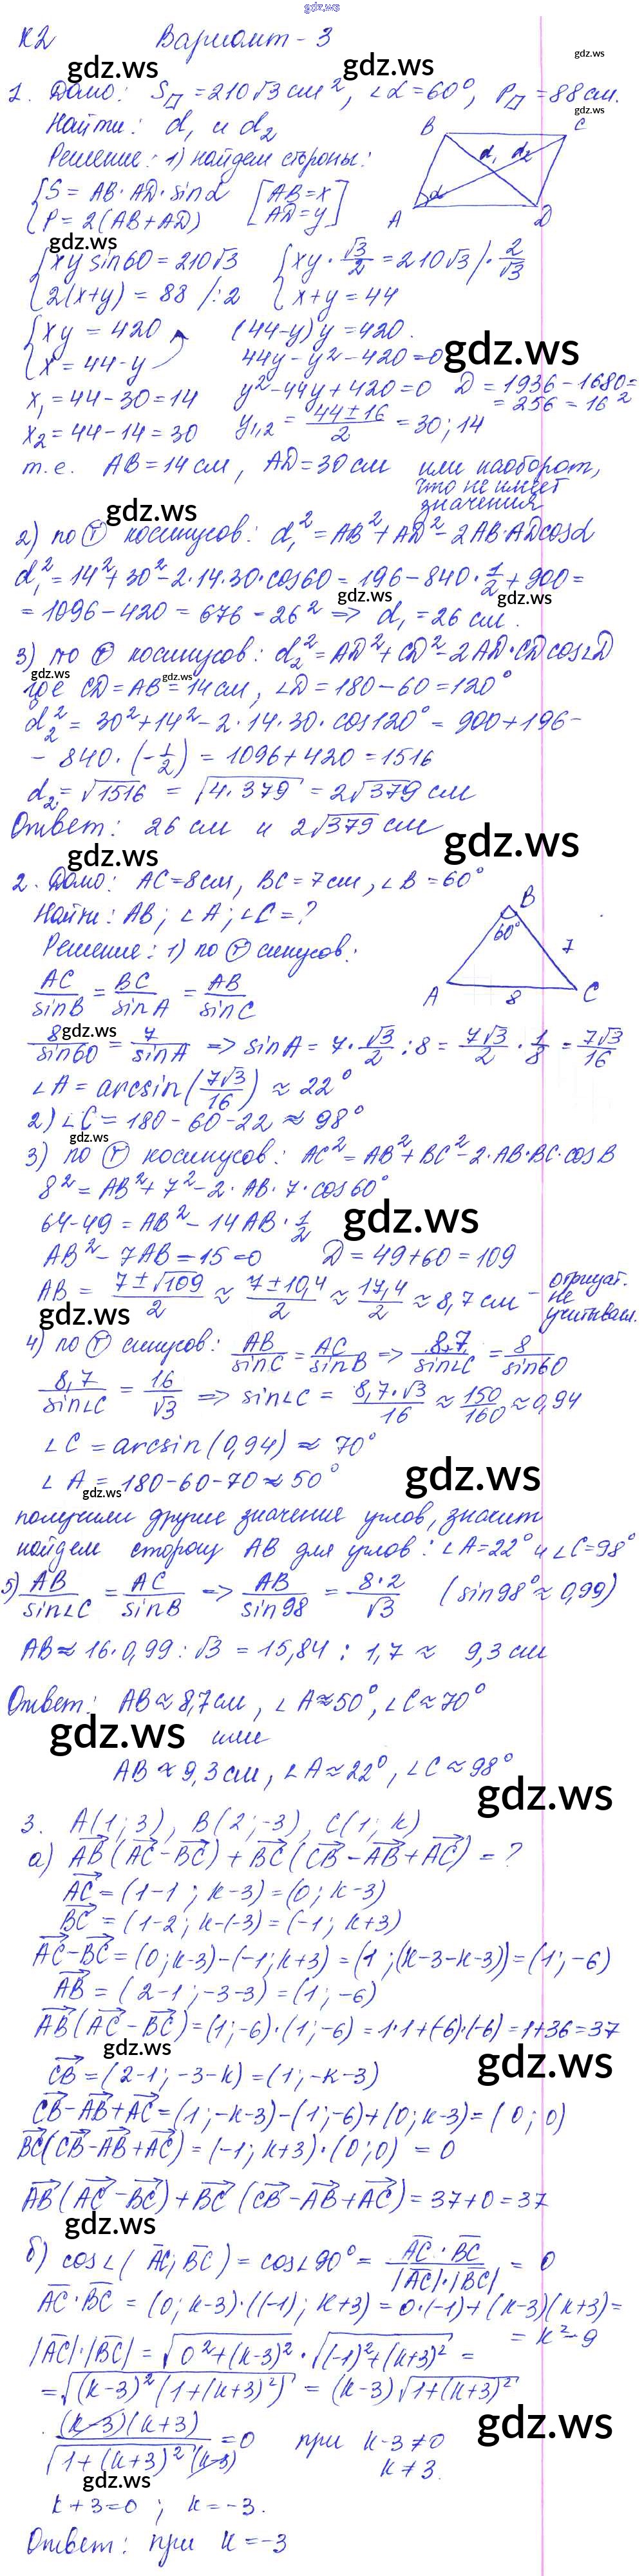 gdz.ws
К2 Вариант-3
gdz.ws
gdz.ws
1. Дано: S▱=210√3 см², ∠α=60°, P▱=88 см.
gdz.ws
Найти: d₁ и d₂
B C
d₁ d₂
α
A D
Решение: 1) найдем стороны:
{S = AB·AD·sinα [AB=x]
{P = 2(AB+AD) [AD=y]
gdz.ws
{xy sin60=210√3 {xy·√3/2=210√3 /·2/√3
{2(x+y) = 88 /:2 {x+y=44
{xy = 420 (44-y)y=420.
gdz.ws
{x = 44-y 44y-y²-420=0
x₁=44-30=14 y²-44y+420=0 D = 1936-1680=
= 256 = 16²
x₂=44-14=30 y₁,₂ = (44±16)/2 = 30; 14
т.е. AB=14 см, AD=30 см или наоборот,
что не имеет
значения
gdz.ws
2) по Ⓣ косинусов: d₁²=AB²+AD²-2AB·ADcosα
d₁²=14²+30²-2·14·30·cos60=196-840·1/2+900=
gdz.ws
gdz.ws
=1096-420=676=26² => d₁=26 см.
3) по Ⓣ косинусов: d₂²=AD²+CD²-2AD·CDcos∠D
gdz.ws
gdz.ws
где CD=AB=14см, ∠D=180-60=120°
d₂²=30²+14²-2·14·30·cos120°=900+196-
-840·(-1/2)=1096+420=1516
d₂=√1516 = √4·379 = 2√379 см
Ответ: 26 см и 2√379 см
gdz.ws
gdz.ws
2. Дано: AC=8см, BC=7см, ∠B=60°
Найти: AB; ∠A; ∠C=?
B
60°
7
A
8
C
Решение: 1) по Ⓣ синусов:
AC/sinB = BC/sinA = AB/sinC
gdz.ws
8/sin60 = 7/sinA => sinA = 7·√3/2 : 8 = 7√3/2 · 1/8 = 7√3/16
∠A=arcsin(7√3/16) ≈ 22°
2) ∠C=180-60-22≈98°
gdz.ws
3) по Ⓣ косинусов: AC²=AB²+BC²-2·AB·BC·cosB
8²=AB²+7²-2·AB·7·cos60°
gdz.ws
64-49=AB²-14AB·1/2
AB²-7AB-15=0 D=49+60=109
AB = (7±√109)/2 ≈ (7±10,4)/2 ≈ 17,4/2 ≈ 8,7 см - отрицат.
не
учитываем.
gdz.ws
4) по Ⓣ синусов: AB/sinC = AC/sinB => 8,7/sin∠C = 8/sin60
8,7/sin∠C = 16/√3 => sin∠C = 8,7·√3/16 ≈ 150/160 ≈ 0,94
∠C=arcsin(0,94)≈70°
gdz.ws
∠A=180-60-70≈50°
gdz.ws
получили другие значение углов, значит
найдем сторону AB для углов: ∠A=22° и ∠C=98°
5) AB/sin∠C = AC/sinB => AB/sin98 = 8·2/√3 (sin98°≈0,99)
AB≈16·0,99:√3=15,84:1,7≈ 9,3 см
Ответ: AB≈8,7см, ∠A≈50°, ∠C≈70°
gdz.ws
или
AB≈9,3 см, ∠A≈22°, ∠C≈98°
gdz.ws
3. A(1;3), B(2;-3), C(1;k)
а) AB(AC-BC)+BC(CB-AB+AC)=?
AC=(1-1; k-3)=(0; k-3)
BC=(1-2; k-(-3)=(-1; k+3)
AC-BC=(0;k-3)-(-1;k+3)=(1;(k-3-k-3))=(1;-6)
AB=(2-1;-3-3)=(1;-6)
AB(AC-BC)=(1;-6)·(1;-6)=1·1+(-6)·(-6)=1+36=37
gdz.ws
gdz.ws
CB=(2-1;-3-k)=(1;-k-3)
CB-AB+AC=(1;-k-3)-(1;-6)+(0;k-3)=(0;0)
BC(CB-AB+AC)=(-1;k+3)·(0;0) = 0
AB(AC-BC)+BC(CB-AB+AC)=37+0=37
gdz.ws
б) cos∠(AC;BC)=cos∠90°= AC·BC/|AC|·|BC| = 0
AC·BC=(0;k-3)·((-1);k+3)=0·(-1)+(k-3)(k+3)=
= k²-9
|AC|·|BC|=√0²+(k-3)²·√(-1)²+(k+3)² =
=√(k-3)²(1+(k+3)²) = (k-3)√1+(k+3)²
gdz.ws
(k-3)(k+3)/√1+(k+3)²(k-3) = 0 при k-3≠0
k≠3.
gdz.ws
k+3=0; k=-3.
Ответ: при k=-3